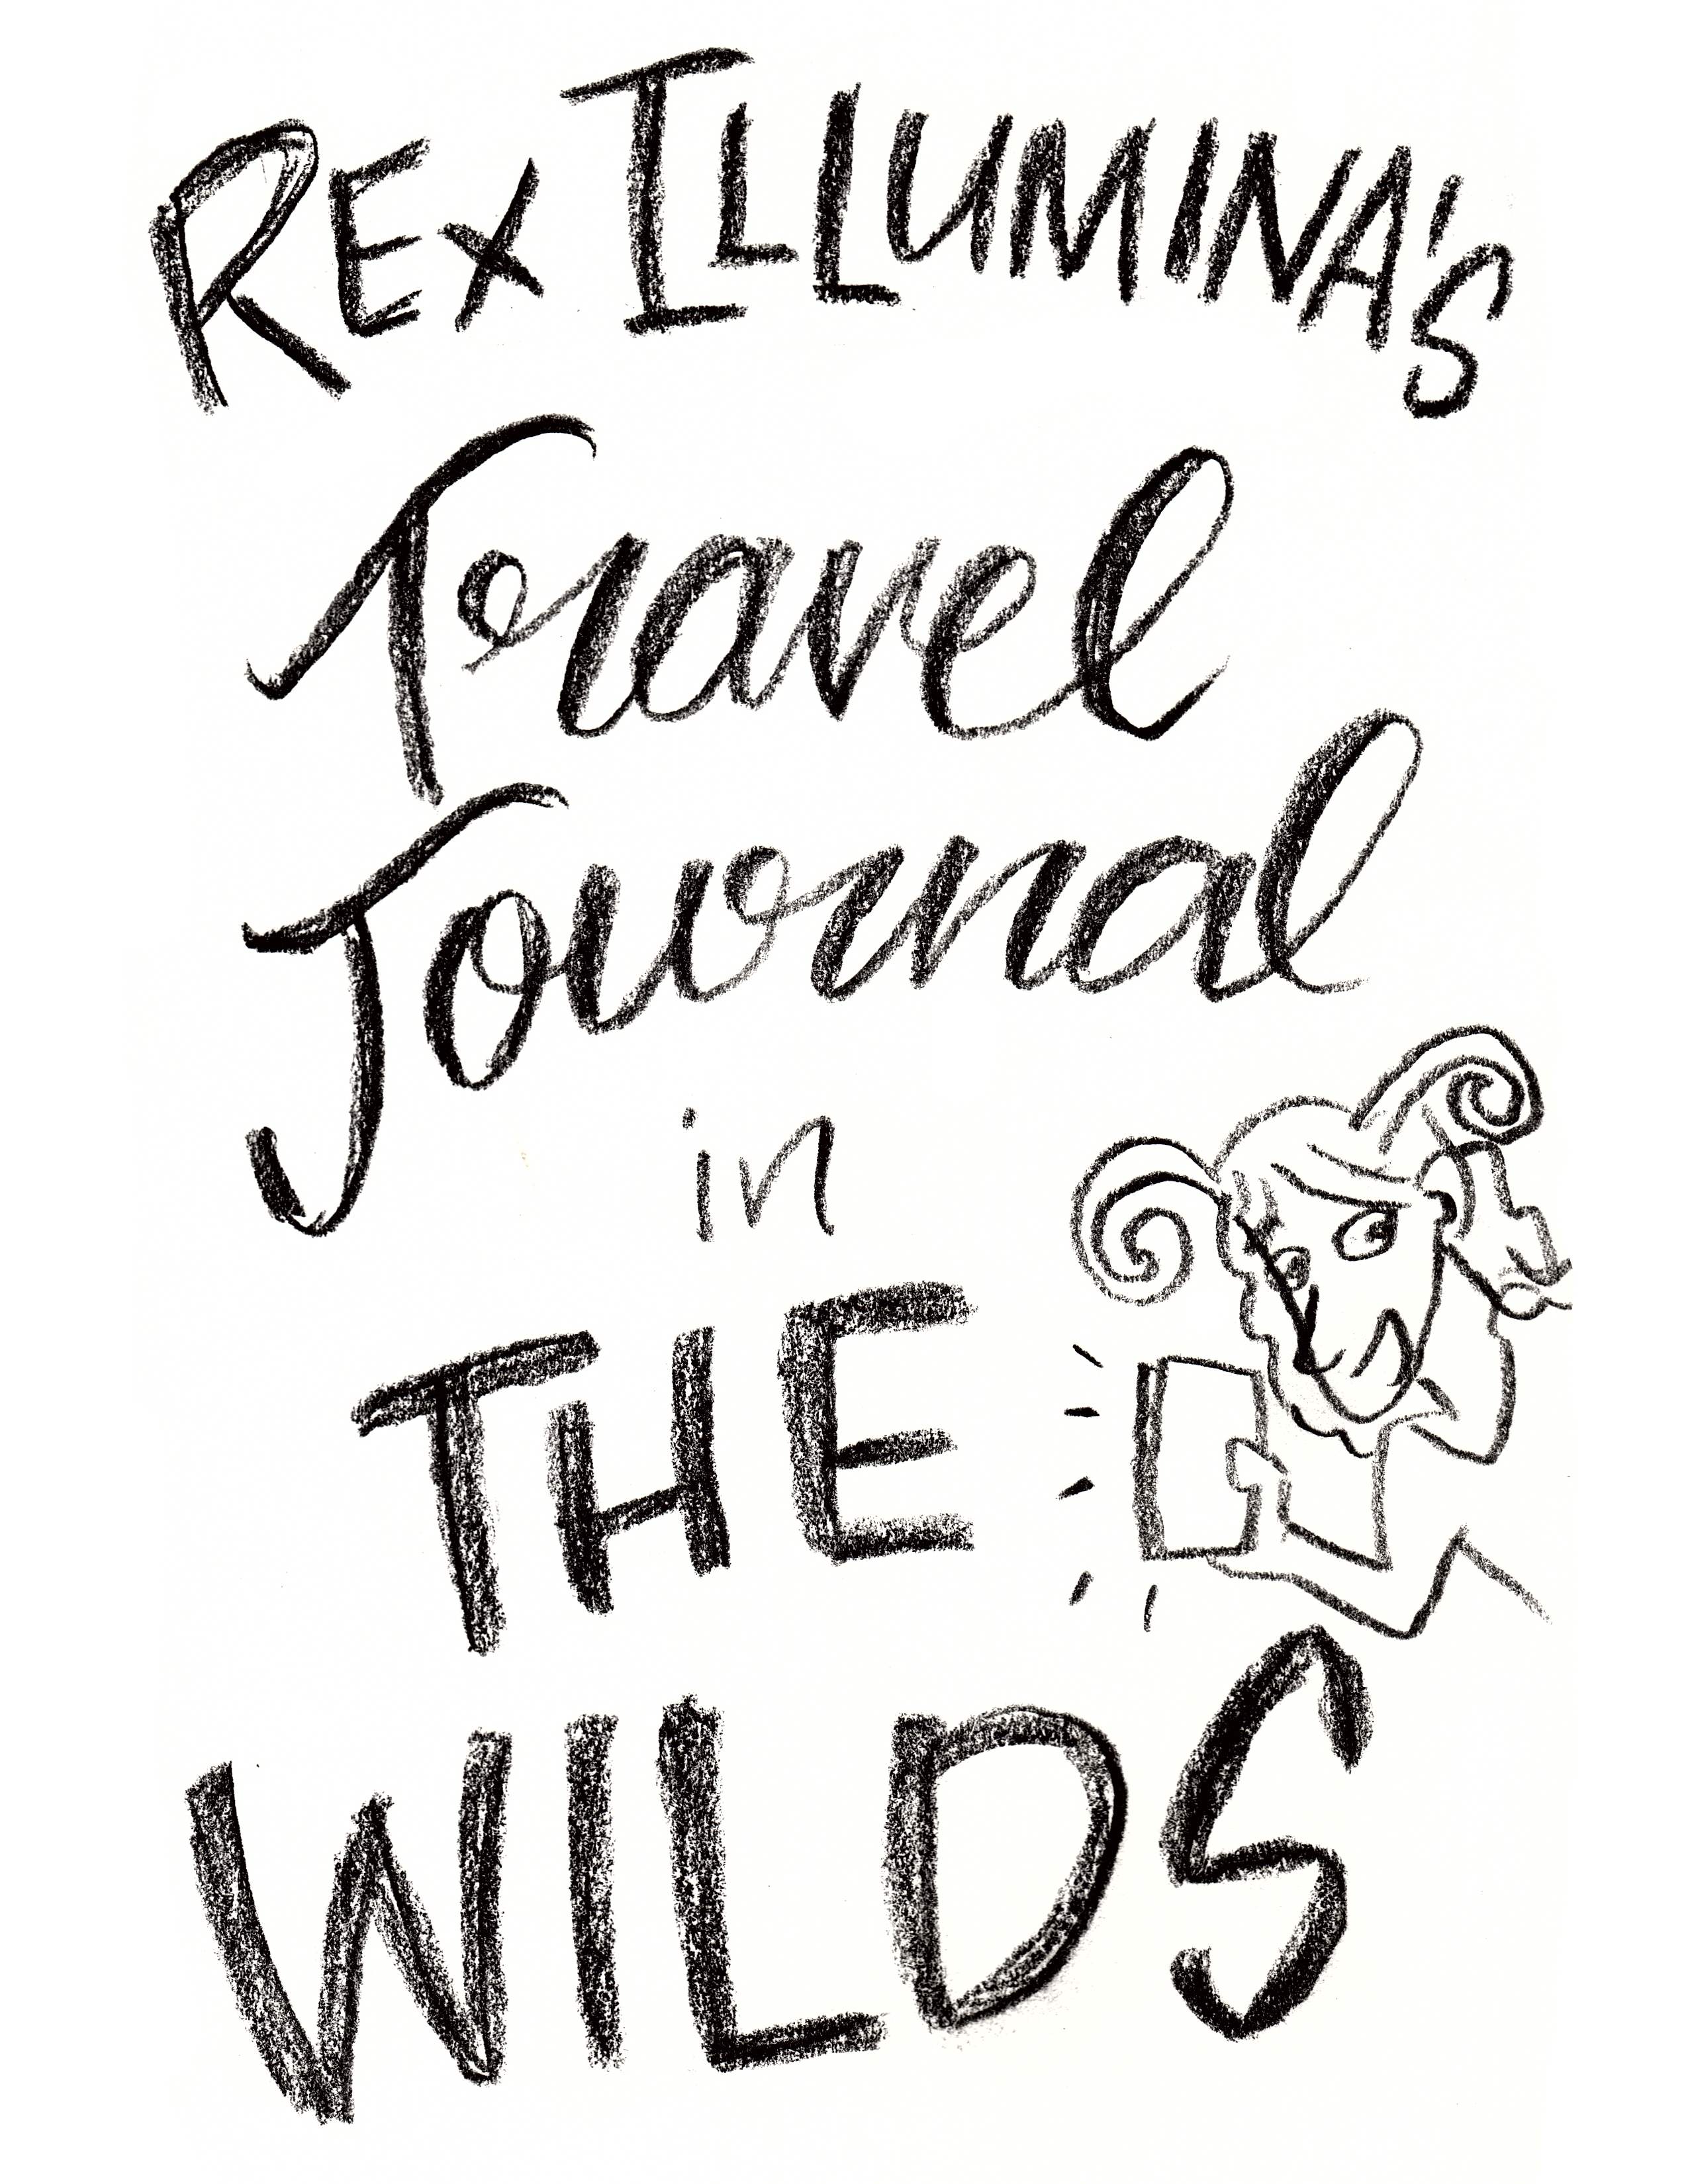 REX ILLUMINA'S
Travel
Journal
in
THE
WILDS